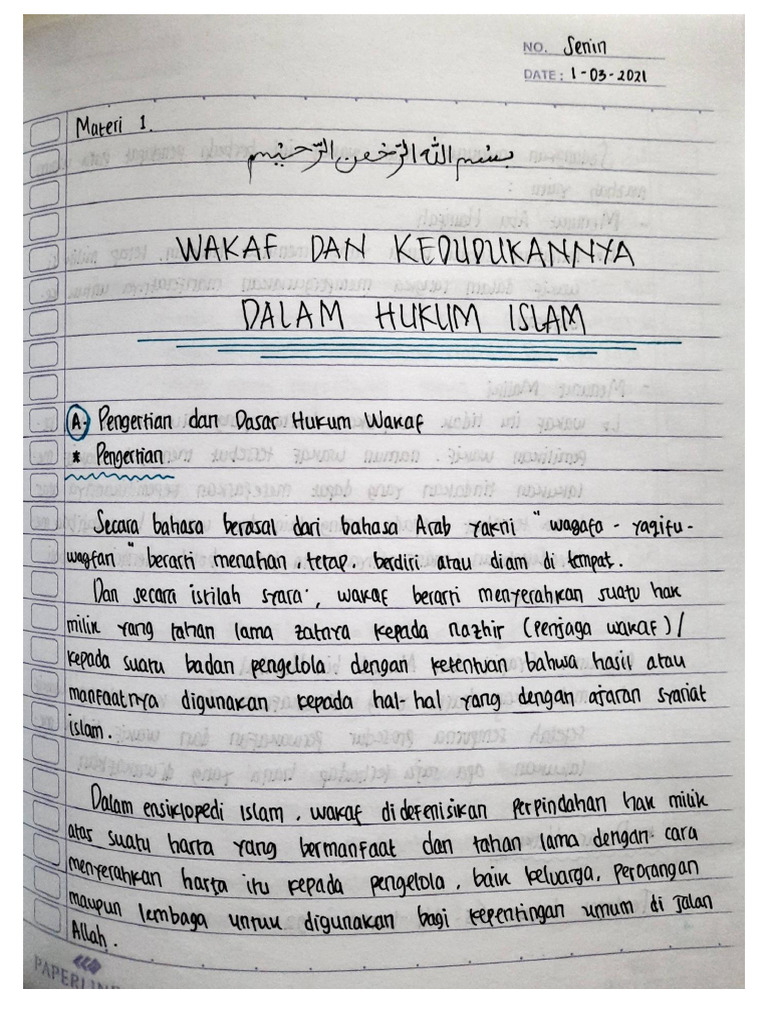 NO. Senin
DATE: 1-03-2021
Materi 1.
بسم الله الرحمن الرحيم
WAKAF DAN KEDUDUKANNYA
DALAM HUKUM ISLAM
A. Pengertian dan Dasar Hukum Wakaf
* Pengertian
Secara bahasa berasal dari bahasa Arab yakni "waqafa - yaqifu -
waqfan" berarti menahan, tetap, berdiri atau diam di tempat.
Dan secara istilah syara', wakaf berarti menyerahkan suatu hak
milik yang tahan lama zatnya kepada nazhir (penjaga wakaf) /
kepada suatu badan pengelola dengan ketentuan bahwa hasil atau
manfaatnya digunakan kepada hal-hal yang dengan ajaran syariat
islam.
Dalam ensiklopedi Islam, wakaf didefenisikan perpindahan hak milik
atas suatu harta yang bermanfaat dan tahan lama dengan cara
menyerahkan harta itu kepada pengelola, baik keluarga, perorangan
maupun lembaga untuk digunakan bagi kepentingan umum di Jalan
Allah.
PAPERLINE